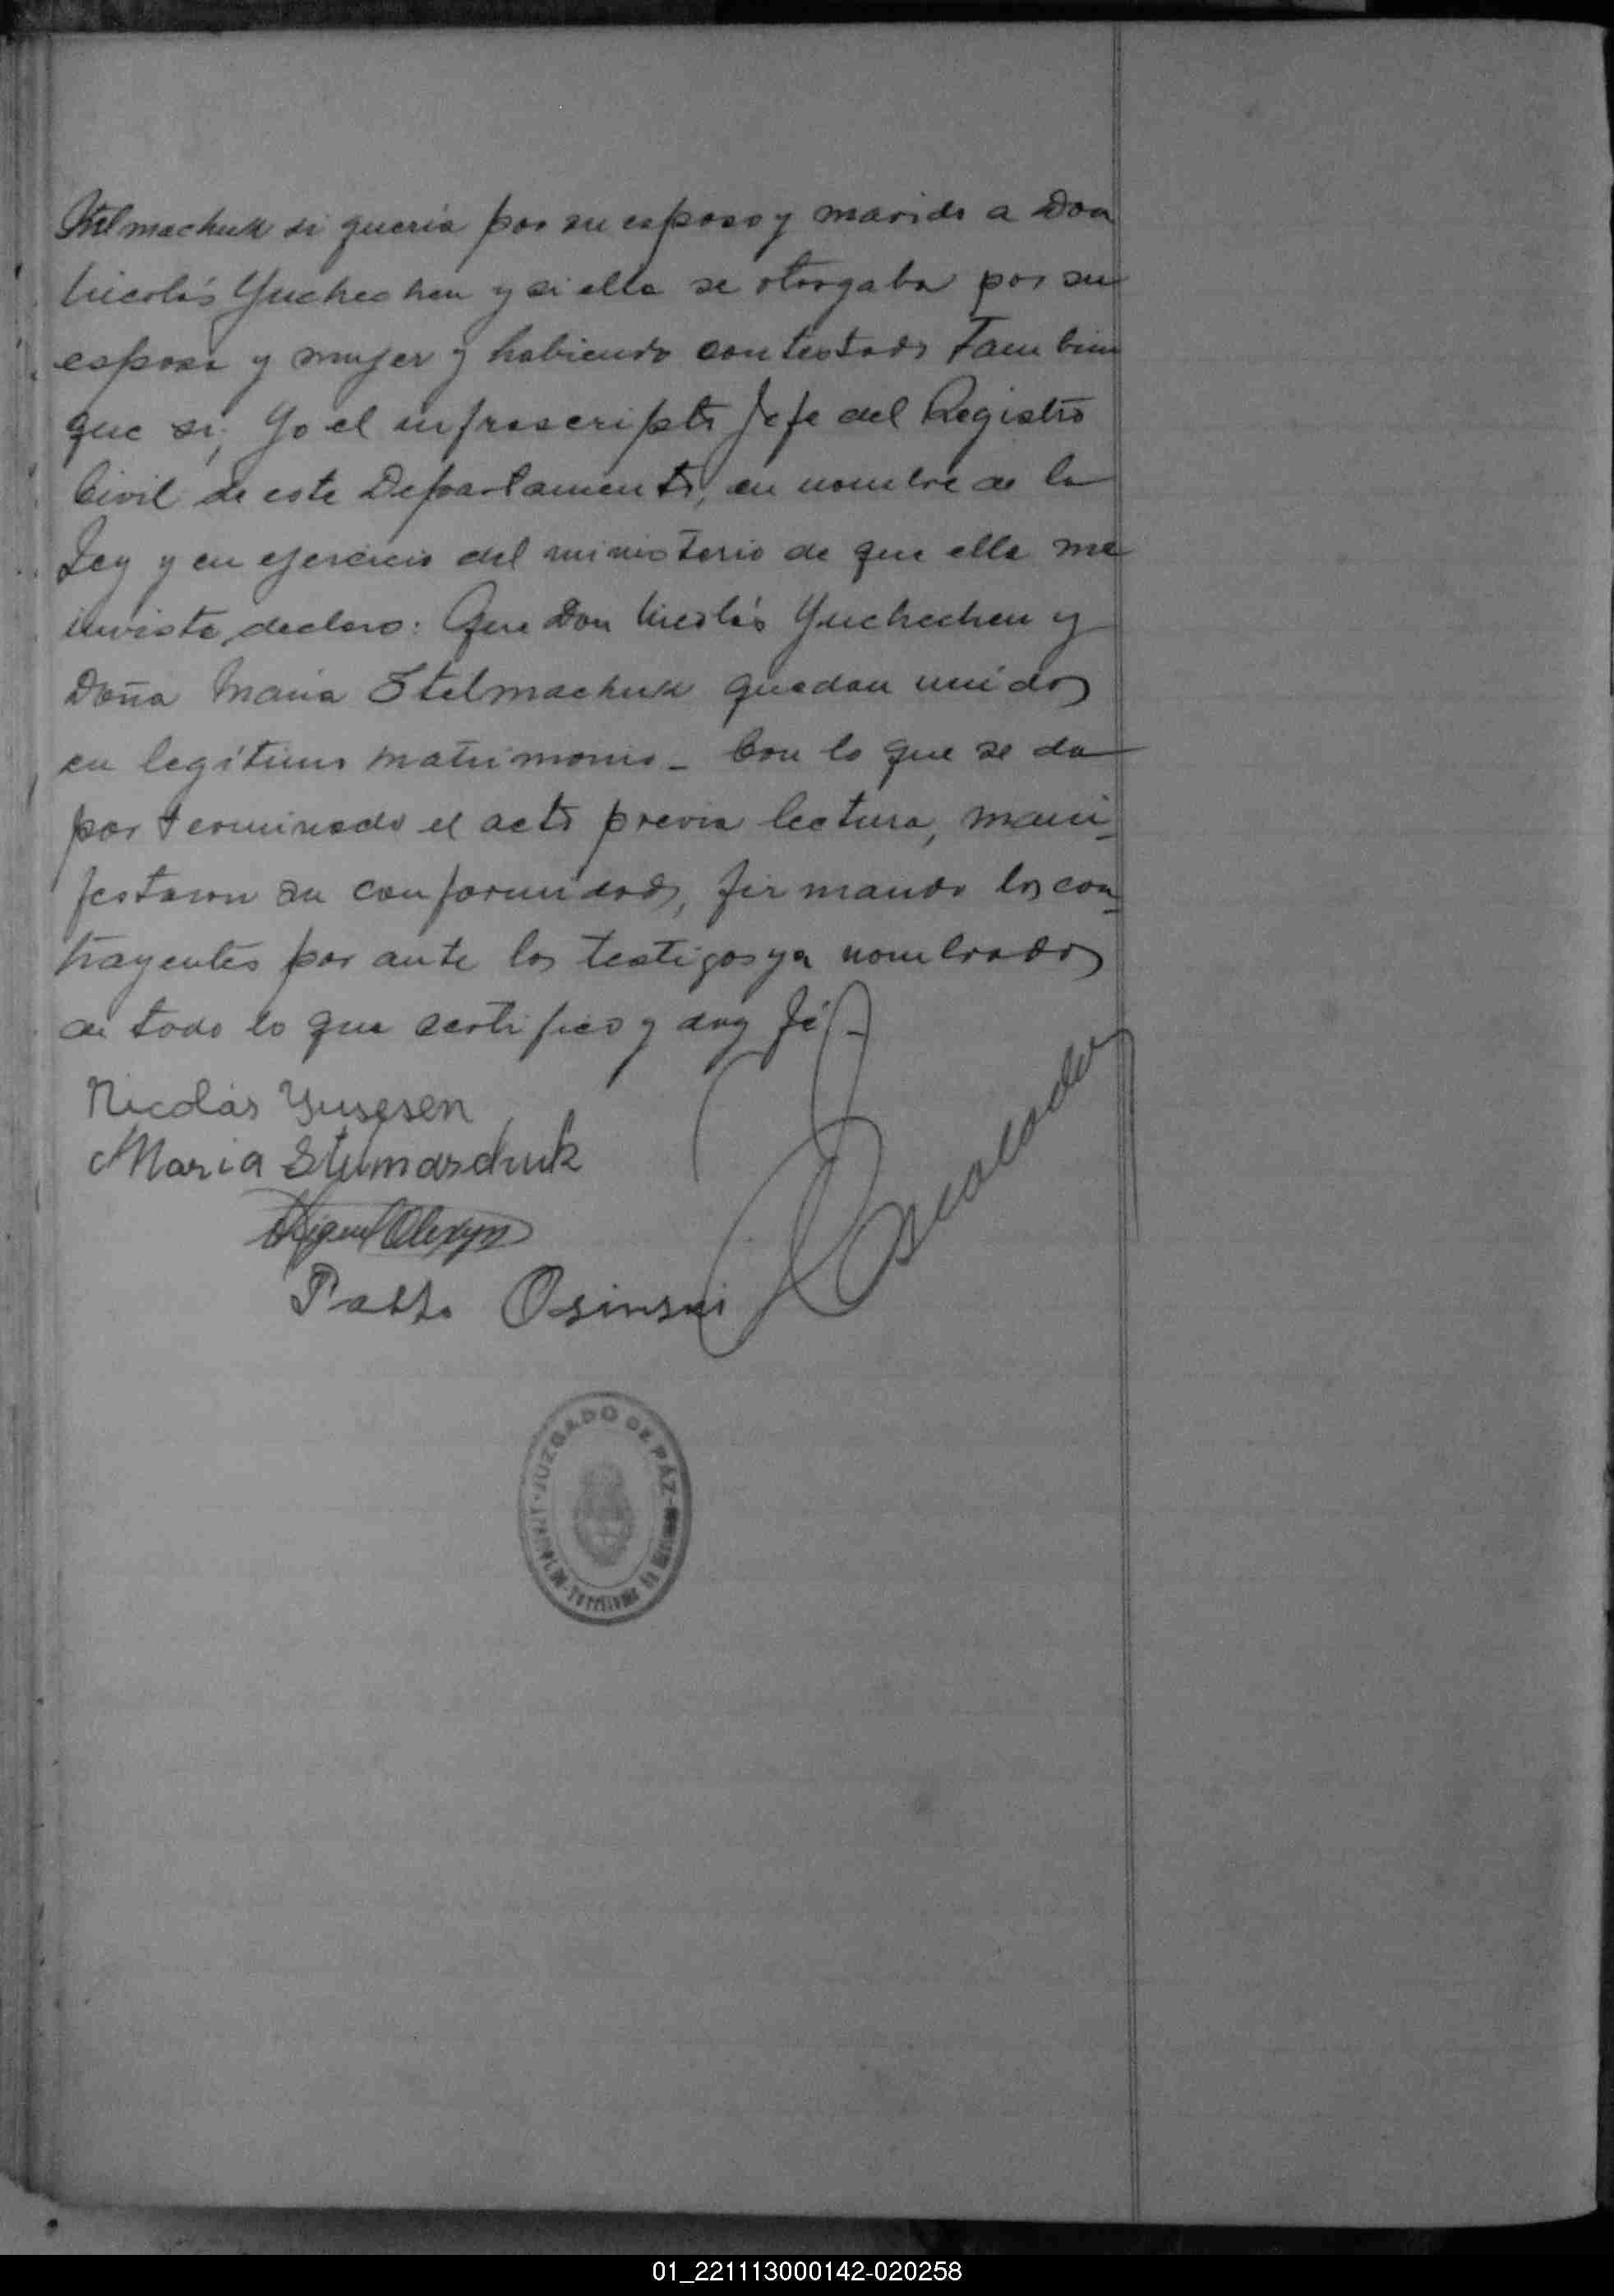 Stelmachuk si quería por su esposo y marido a Don
Nicolás Yuchechen y si ella se otorgaba por su
esposa y mujer y habiendo contestado Tambien
que si; Yo el infrascripto Jefe del Registro
Civil de este Departamento, en nombre de la
Ley y en ejercicio del ministerio de que ella me
inviste, declaro: Que Don Nicolás Yuchechen y
Doña Maria Stelmachuk quedan unidos
en legítimo matrimonio _ Con lo que se da
por terminado el acto previa lectura, mani_
festaron su conformidad, firmando los con_
trayentes por ante los testigos ya nombrados
de todo lo que certifico y doy fé _
Nicolás Yusesen
Maria Stumaschuk
Miguel
Pablo Osinski
JUZGADO DE PÁZ
Territorio de Misiones
01_221113000142-020258